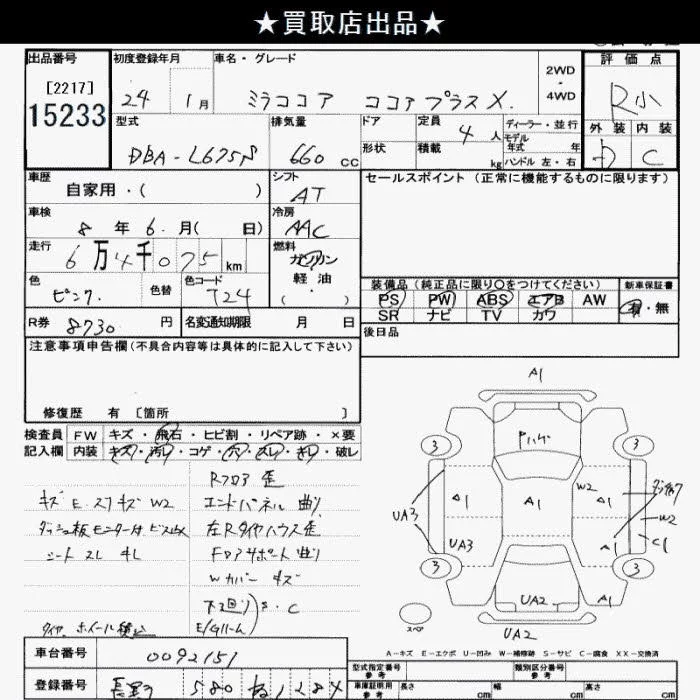 ★買取店出品★
出品番号 初度登録年月 車名・グレード 2WD・4WD 評価点
[2217]
15233
24 1月 ミラココア ココアプラスX. R小
型式 排気量 ドア 定員 4人 ディーラー・並行 外装 内装
形状 積載 kg モデル年式 年 ハンドル 左・右
DBA-L675S 660 CC C
車歴 シフト セールスポイント(正常に機能するものに限ります)
自家用・( ) AT
車検 冷房
8年 6.月( 日) AAC
走行 燃料
6万4千075km ガソリン
軽油
( ・ )
色 色替 色コード 装備品(純正品に限り〇をつけてください) 新車保証書
ピンク. T24 PS PW ABS エアB AW 有・無
SR ナビ TV カワ
R券 8730 円 名変通知期限 月 日 後日品
注意事項申告欄(不具合内容等は具体的に記入して下さい)
修復歴 有〔箇所 〕
検査員 FW キズ・飛石・ヒビ割・リペア跡・×要
記入欄 内装 キズ・汚レ・コゲ・穴・スレ・キレ・破レ
Rフロア 歪
キズ E.スリキズ W2 エンドパネル 曲り
ダッシュ板モニター付ビス穴 左Rタイヤハウス歪
シート スレ キレ Fロアサポート 曲り
Wカバー キズ
下廻り S.C
タイヤ ホイール積込 E/Gルーム
A1
Pハゲ
3 3
A1 A1 W2 A1
UA3 W2
UA3 A1 C1
3 3
UA2 A1
スペア UA2
A-キズ E-エクボ U-凹み W-補修跡 S-サビ C-腐食 XX-交換済
車台番号 0092151
型式指定番号 参考 類別区分番号 参考
登録番号 長野 580 ね1284
車庫証明用 参考 長さ cm 幅 cm 高さ cm